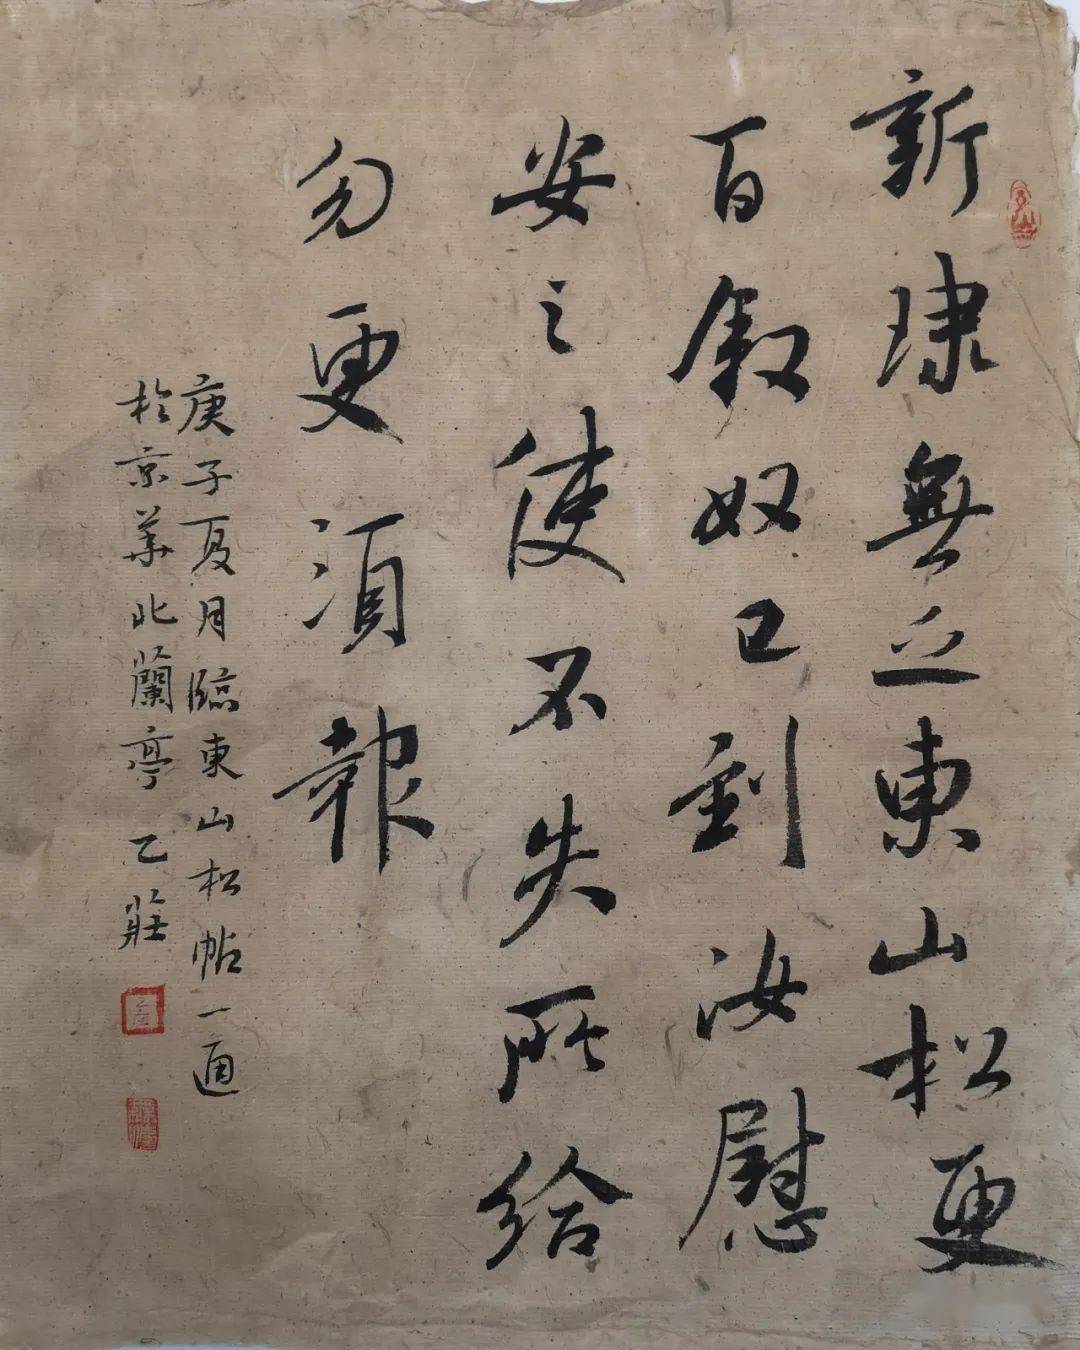 新埭無乏東山松更
百叙奴已到汝慰
安之使不失所給
勿更須報
庚子夏月臨東山松帖一通
於京華北蘭亭 乙莊